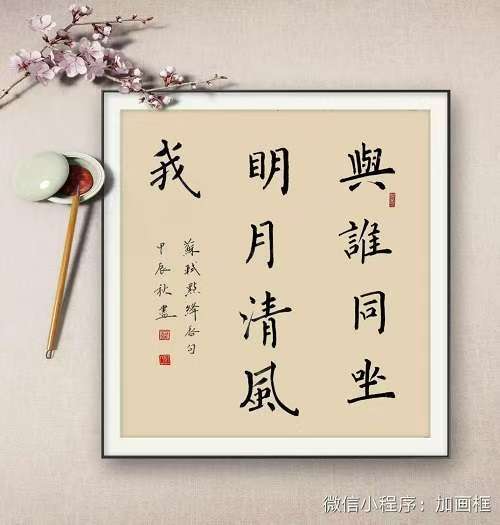 與誰同坐
明月清風
我
蘇軾點絳唇句
甲辰秋
微信小程序：加画框